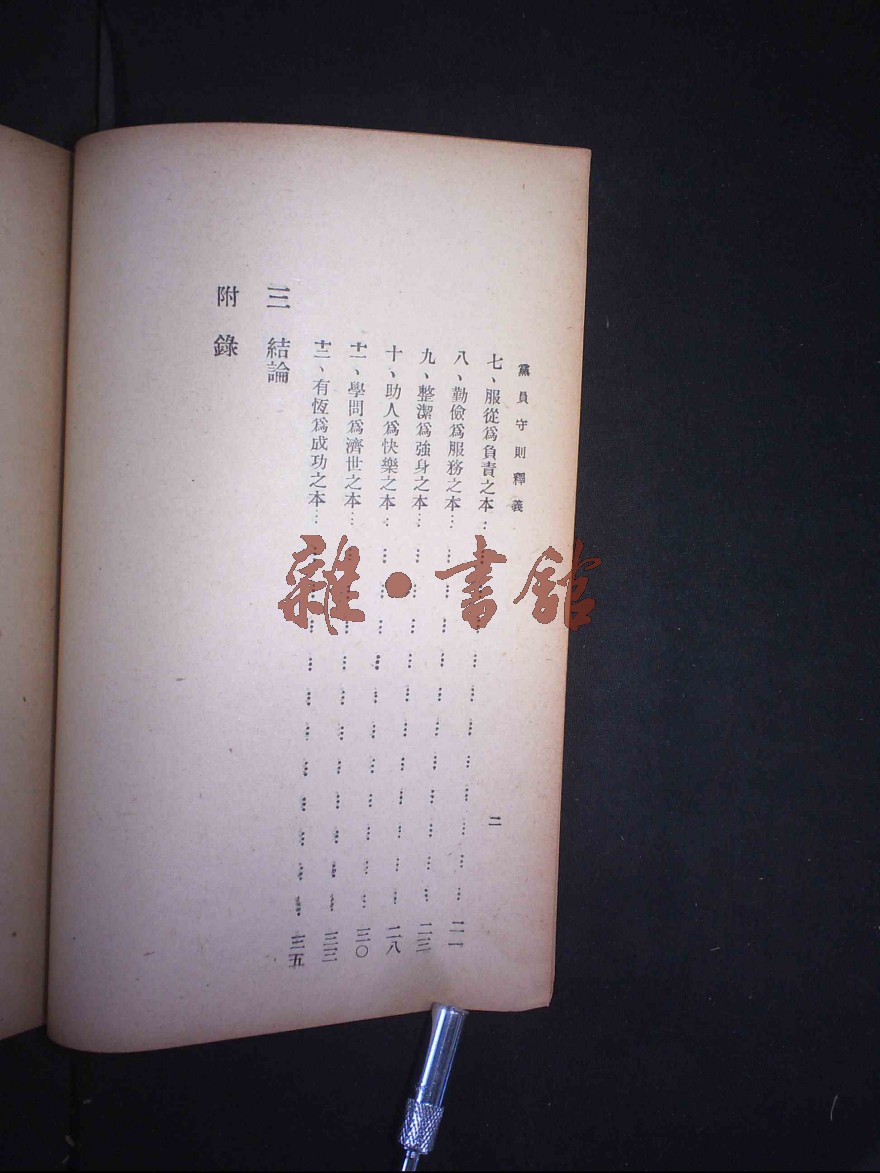 黨員守則釋義 二
七、服從爲負責之本……………………………二一
八、勤儉爲服務之本……………………………二三
九、整潔爲強身之本……………………………二八
十、助人爲快樂之本……………………………三〇
十一、學問爲濟世之本……………………………三三
十二、有恆爲成功之本……………………………三五
三 結論
附錄
雜·書館